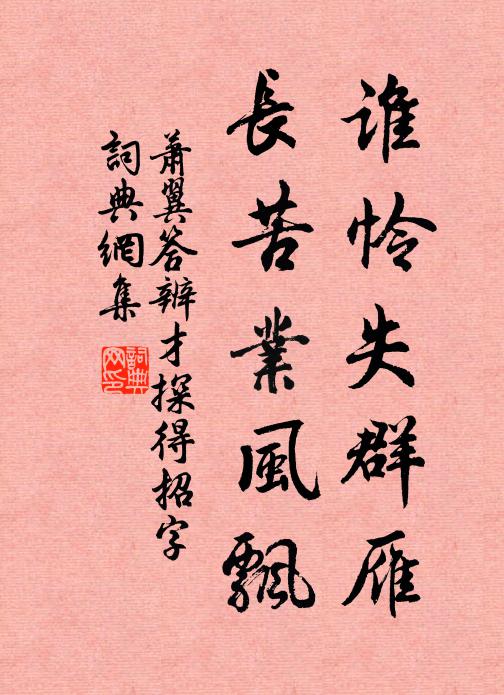 誰怜失群雁
長苦業風飄
蕭翼答辨才探得招字
詞典網集
詞典
网印